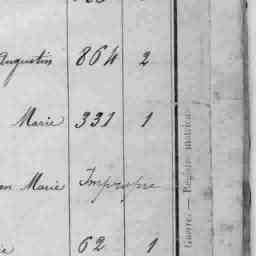 Augustin 864 2
Marie 331 1
Marie Impropre
62 1
Guerre. — Registre matricule